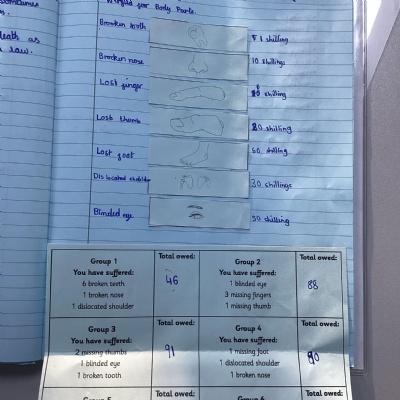 Wergild for Body Parts.
death as
law.
Broken tooth
1 shilling
Broken nose
10 shillings
Lost finger
shilling
Lost thumb
20 shilling
Lost foot
50 shilling
Dislocated shoulder
30 shillings
Blinded eye
50 shilling
Group 1
You have suffered:
6 broken teeth
1 broken nose
1 dislocated shoulder
Total owed:
46
Group 2
You have suffered:
1 blinded eye
3 missing fingers
1 missing thumb
Total owed:
88
Group 3
You have suffered:
2 missing thumbs
1 blinded eye
1 broken tooth
Total owed:
91
Group 4
You have suffered:
1 missing foot
1 dislocated shoulder
1 broken nose
Total owed:
90
Group 5
Total owed:
Group 6
Total owed: